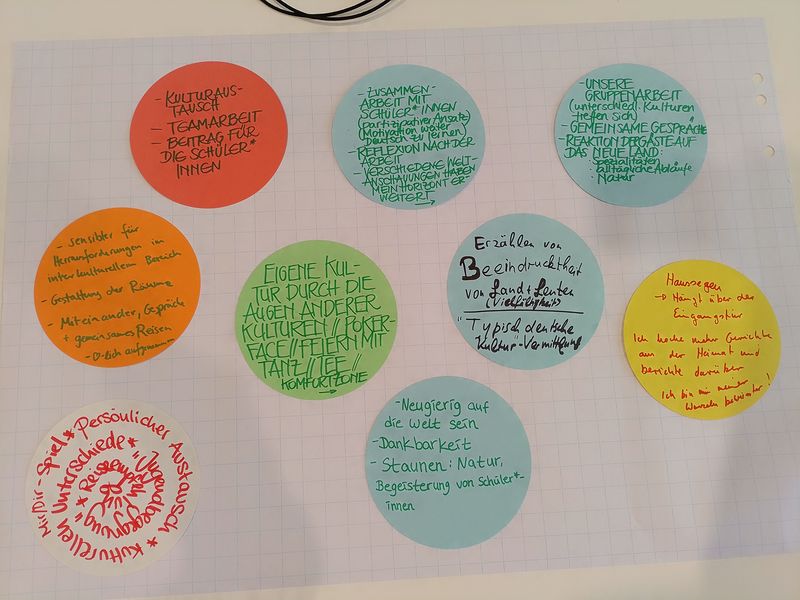 - KULTURAUS-
TAUSCH
- TEAMARBEIT
- BEITRAG FÜR
DIE SCHÜLER*
INNEN
- ZUSAMMEN-
ARBEIT MIT
SCHÜLER*INNEN
(partizipativer Ansatz)
(Motivation weiter
Deutsch zu lernen)
- REFLEXION NACH DER
ARBEIT
- VERSCHIEDENE WELT-
ANSCHAUUNGEN HABEN
MEIN HORIZONT ER-
WEITERT
- UNSERE
GRUPPENARBEIT
(unterschiedl. Kulturen
treffen sich)
- GEMEINSAME GESPRÄCHE
- REAKTION DER GÄSTE AUF
DAS NEUE LAND:
· Spezialitäten
· alltägliche Abläufe
· Natur
- Sensibler für
Herausforderungen im
interkulturellem Bereich
- Gestaltung der Räume
- Miteinander, Gespräche
+ gemeinsames Reisen
- ♡-lich aufgenommen
EIGENE KUL-
TUR DURCH DIE
AUGEN ANDERER
KULTUREN // POKER-
FACE // FEIERN MIT
TANZ // TEE //
KOMFORTZONE
Erzählen von
Beeindrucktheit
von Land + Leuten
(Vielfältigkeit)
"Typisch deutsche
Kultur"-Vermittlung
Haussegen
→ Hängt über der
Eingangstür
Ich koche mehr Gerichte
aus der Heimat und
berichte darüber
Ich bin mir meiner
Wurzeln bewusster!
Mir/Dir-Spiel * Persönlicher Austausch * Kulturellen Unterschiede * "Jugendbegegnung" *
- Neugierig auf
die Welt sein
- Dankbarkeit
- Staunen: Natur,
Begeisterung von Schüler*-
innen